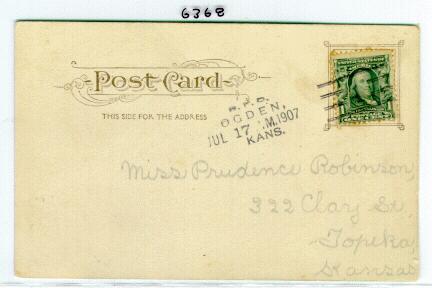 6368
Post Card
THIS SIDE FOR THE ADDRESS
R.F.D.
OGDEN,
JUL 17 M.1907
KANS.
Miss Prudence Robinson,
322 Clay St.
Topeka,
Kansas